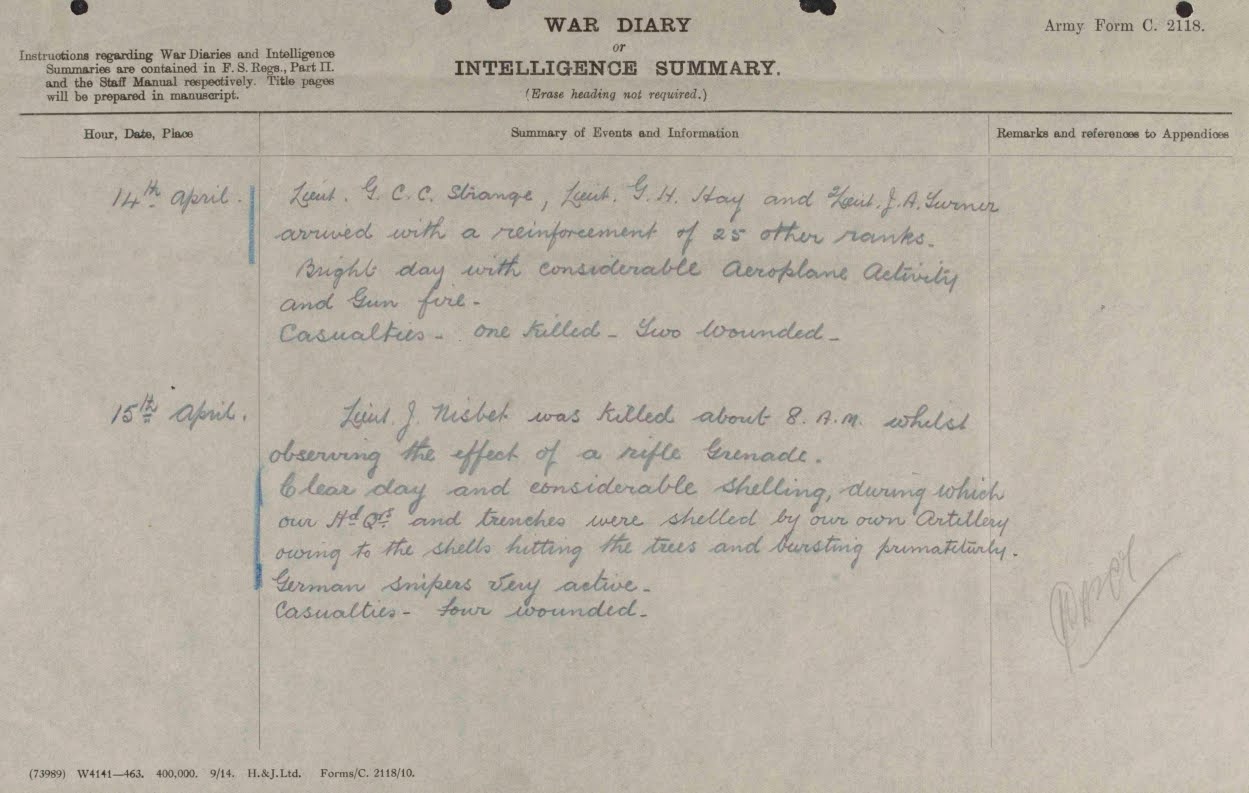 WAR DIARY
or
INTELLIGENCE SUMMARY.
(Erase heading not required.)
Army Form C. 2118.
Instructions regarding War Diaries and Intelligence
Summaries are contained in F. S. Regs., Part II.
and the Staff Manual respectively. Title pages
will be prepared in manuscript.
Hour, Date, Place
Summary of Events and Information
Remarks and references to Appendices
14th April.
Lieut. G. C. C. Strange, Lieut. G. H. Hay and Lieut. J. A. Turner
arrived with a reinforcement of 25 other ranks.
Bright day with considerable Aeroplane Activity
and Gun fire -
Casualties - one killed - Two Wounded -
15th April.
Lieut. J. Nisbet was killed about 8. A.M. whilst
observing the effect of a rifle Grenade.
Clear day and considerable shelling, during which
our Hd Qrs and trenches were shelled by our own Artillery
owing to the shells hitting the trees and bursting primatiturly.
German snipers very active -
Casualties - four wounded -
(73989) W4141—463. 400,000. 9/14. H.&J.Ltd. Forms/C. 2118/10.